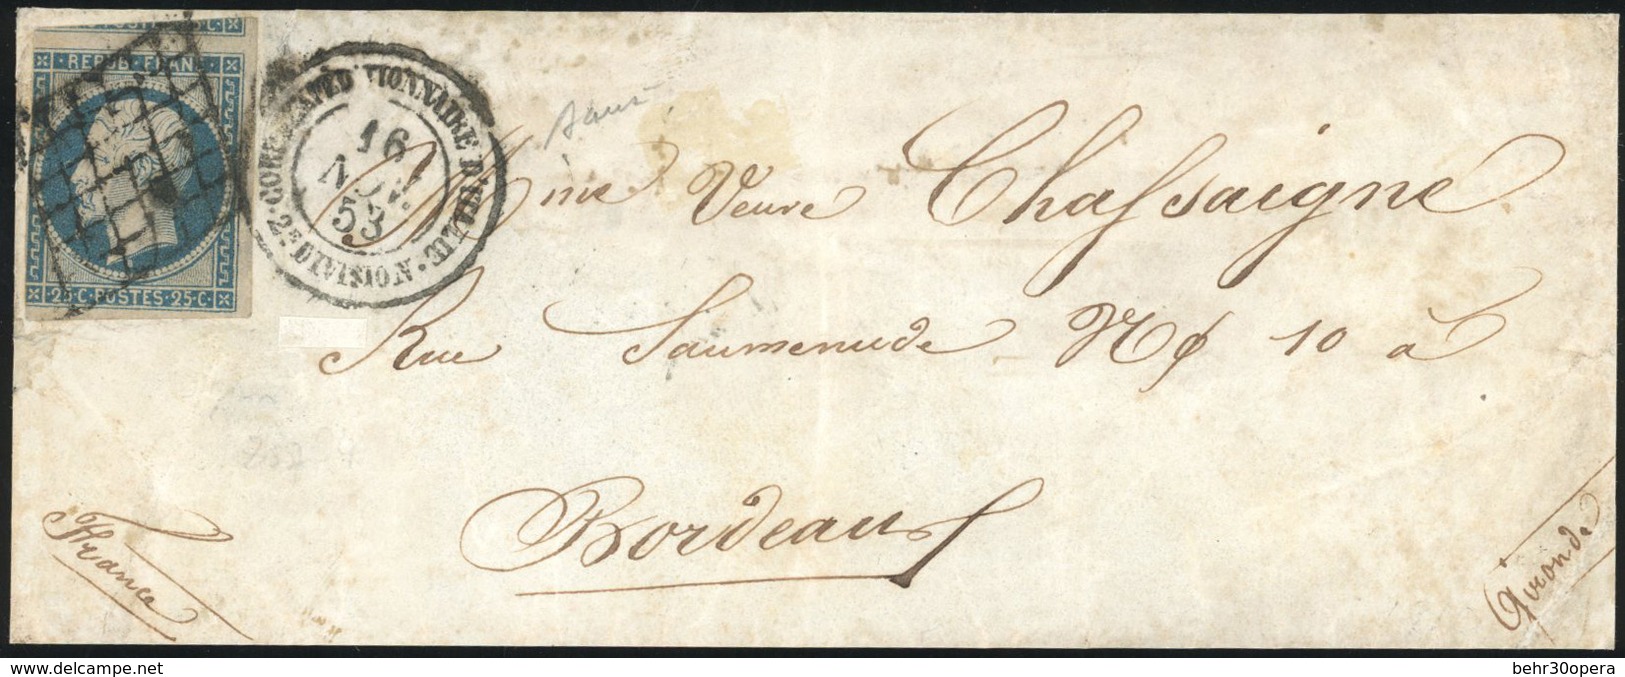 POSTES 25·C·
REPUB·FRANC
25·C·POSTES·25·C·
CORPS EXPED TIONNAIRE D'ITALIE · 2E DIVISION ·
16
NOV.
53
Mme Veuve Chassaigne
Rue Saumenude No 10 à
Bordeaux
France
Gironde
behr30opera